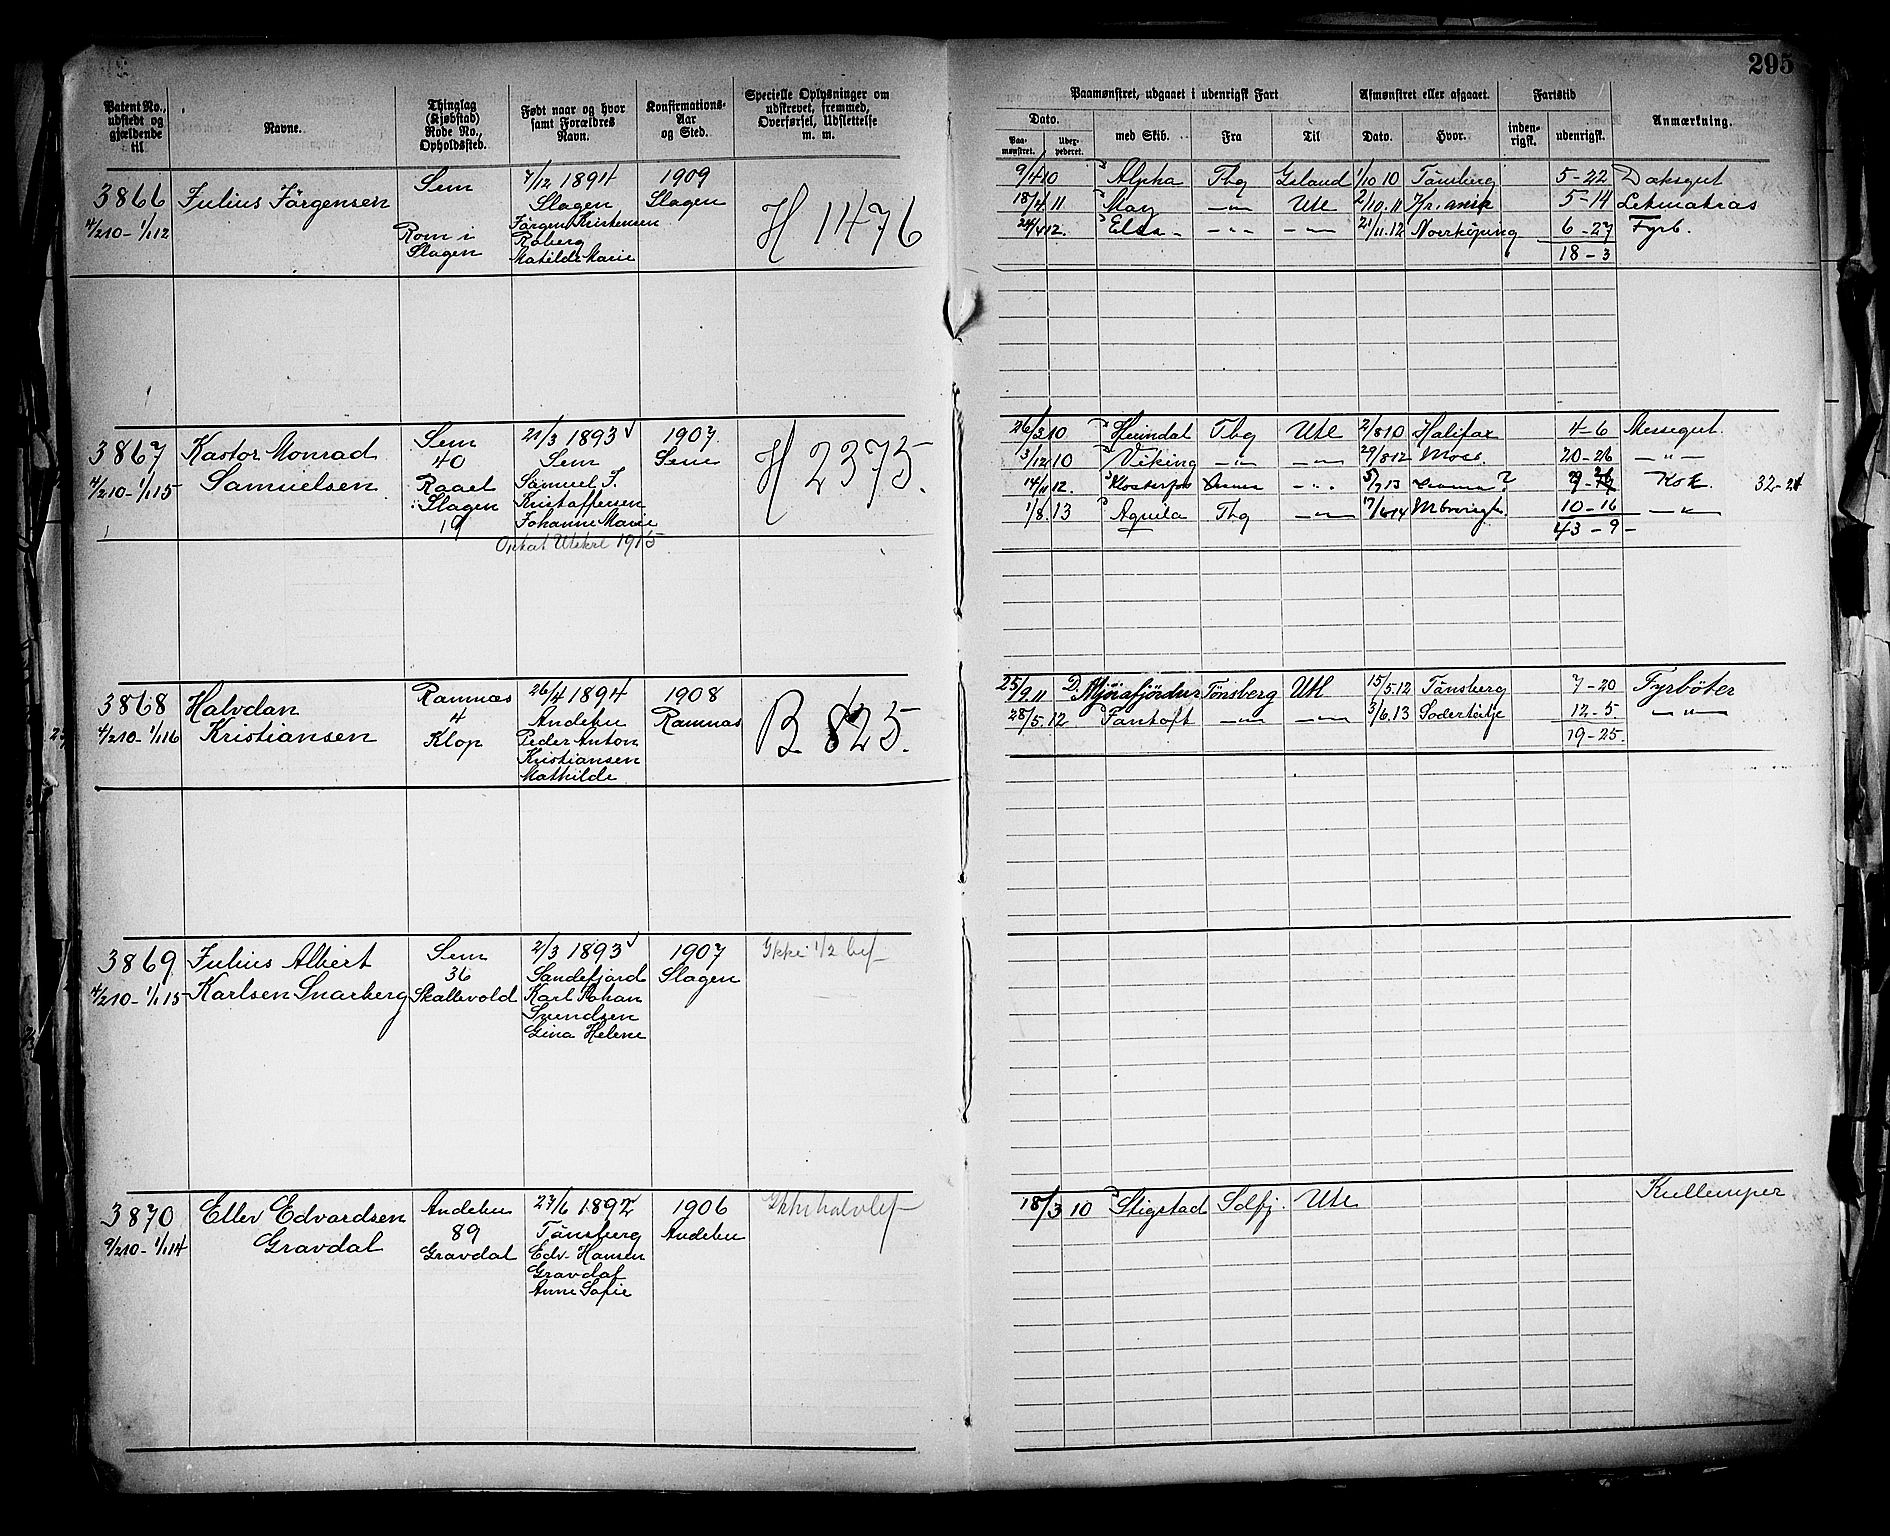 295
Patent No., udstedt og gjældende til
Navne.
Thinglag (Kjøbstad) Rode No., Opholdssted.
Født naar og hvor samt Forældres Navn.
Konfirmations-Aar og Sted.
Specielle Oplysninger om udskrevet, fremmed, Overførsel, Udslettelse m. m.
Paamønstret, udgaaet i udenrigsk Fart
Dato.
Paa-mønstret.
med Skib.
Fra
Til
Afmønstret eller afgaaet.
Dato.
Hvor.
Fartstid
inden-rigsk.
udenrigsk.
Anmærkning.
3866
4/2 10 - 1/1 12
Julius Jörgensen
Sem
Rom i
Slagen
7/12 1894
Slagen
Jörgen Kristensen
Roberg
Matilde Marie
1909
Slagen
H 1476
9/4 10 Alpha Tbg Island 1/10 10 Tönsberg 5-22 Dæksgut
18/4 11 May -"- Utl 2/10.11 5-14 Letmatros
24/4 12. Elsa -"- -"- 21/11.12 Norrköping 6-27 Fyrb.
18-3
3867
4/2 10 - 1/1 15
Kastor Monrad
Samuelsen
Sem
40
Raael
Slagen
19
21/3 1893
Sem
Samuel S.
Kristaffersen
Johanne Marie
1907
Sem
H 2375.
1915
26/3 10 Heimdal Tbg Utl 2/8 10 Halifax 4-6 Messegut
3/12 10 Viking -"- -"- 29/8 12 Moss. 20-26 -"-
14/11 12. Klosterfos -"- 5/7 13 Kok. 32-24
1/8.13 Aquila Tbg -"- 10-16 -"-
43-9-
3868
4/2 10 - 1/1 16
Halvdan
Kristiansen
Ramnæs
4
Klop
26/4 1894
Andebu
Peder Anton
Kristiansen
Mathilde
1908
Ramnæs
B 825.
25/9.11 D. Mjóafjördur Tönsberg Utl 15/5.12 Tänsberg 7-20 Fyrböter
28/5.12 Fantoft -"- -"- 3/6.13 Södertelje 12-5. -"-
19-25.
3869
4/2 10 - 1/1 15
Julius Albert
Karlsen Snarberg
Sem
36
Skallevold
2/3 1893
Sandefjord
Karl Johan
Svendsen
Gina Helene
1907
Slagen
Ikke 1/2 bef
3870
9/2 10 - 1/1 14
Ellev Edvardsen
Gravdal
Andebu
89
Gravdal
27/6 1892
Tänsberg
Edv. Hansen
Gravdal
Anne Sofie
1906
Andebu
Ikke halvbef
18/3 10 Stigstad Solfj. Utl Kullemper